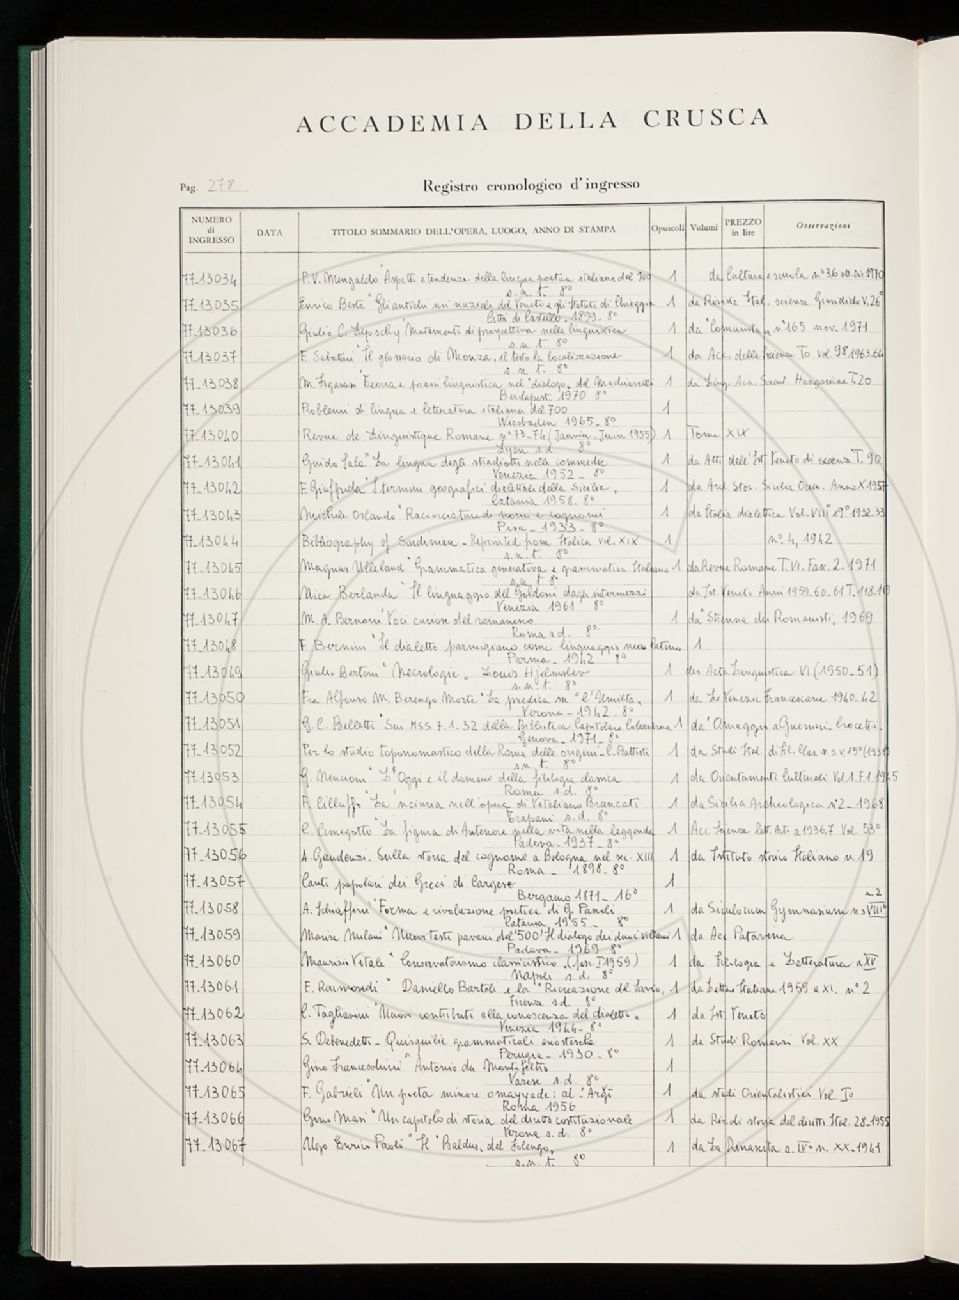 ACCADEMIA DELLA CRUSCA
Pag. 278
Registro cronologico d'ingresso
NUMERO di INGRESSO DATA TITOLO SOMMARIO DELL'OPERA, LUOGO, ANNO DI STAMPA Opuscoli Volumi PREZZO in lire Osservazioni
77-13034 P.V. Mengaldo "Aspetti e tendenze della lingua poetica italiana del 900 1 da Cultura e scuola n° 36 ott. Dic 1970
s.n.t. 8°
77-13035 Enrico Besta "Gli antichi usi nuziali del Veneto e gli Statuti di Chioggia 1 da Rivista Ital. scienze Giuridiche V. 26°
Città di Castello - 1899 - 8°
77-13036 Giulio C. Lepschy "Mutamenti di prospettiva nella linguistica 1 da "Comunità" n° 165 nov. 1971
s.n.t. 8°
77-13037 F. Sabatini "Il glossario di Monza, il testo la localizzazione 1 da Acc. delle Scienze To vol. 98 1963-64
s.n.t. 8°
77-13038 M. Fogarasi "Teoria e prassi linguistica nel "dialogo" del Machiavelli 1 da Ling. Aca. Scient. Hungaricae T. 20
Budapest 1970 8°
77-13039 Problemi di lingua e letteratura italiana del 700 1
Wiesbaden 1965 - 8°
77-13040 Revue de Linguistique Romane n° 73-74 (Janvier - Juin 1955) 1 Tome XIX
Lyon s.d. 8°
77-13041 Guido Sala "La lingua degli stradiotti nelle commedie 1 da Atti dell'Ist. Veneto di scienze T. 90
Venezia 1952 - 8°
77-13042 F. Giuffrida "I termini geografici dialettali della Sicilia" 1 da Arch. Stor. Sicilia Orien. Anno X 1957
Catania 1958 - 8°
77-13043 Michele Orlando "Raccorciature di nomi e cognomi 1 da Italia dialettica Vol. VIII 1932-33
Pisa - 1933 - 8°
77-13044 Bibliography of Sardinian - Reprinted from Italica vol. XIX 1 n° 4, 1942
s.n.t. 8°
77-13045 Magnus Ulleland "Grammatica generativa e grammatica Italiana 1 da Revue Romane T. VI. Fasc. 2. 1971
s.n.t. 8°
77-13046 Mica Berlanda "Il linguaggio del Goldoni dagli intermezzi da Ist. Veneto Anni 1959-60-61 T. 118-119
Venezia 1961 8°
77-13047 M. A. Bernoni "Voci curiose del romanesco 1 da "Strenna dei Romanisti, 1969
Roma s.d. 8°
77-13048 F. Bernini "Il dialetto parmigiano come linguaggio neo latino 1
Parma - 1942 - 8°
77-13049 Giulio Bertoni "Necrologie" Louis Hjelmslev 1 da Acta Linguistica VI (1950-51)
s.n.t. 8°
77-13050 Fra Alfonso M. Berengo Morte "La predica su "l'Umiltà" 1 da Le Venezie Francescane 1940-42
Verona - 1942 - 8°
77-13051 G. C. Belletti "Sui MSS 7.1.32 della Biblioteca Capitolare Colombina 1 da "Omaggio a Guerrieri-Crocetti"
Genova - 1971 - 8°
77-13052 Per lo studio toponomastico della Roma delle origini - C. Battisti 1 da Studi Ital. di Fil. Clas. n.s. v. 15° (1938)
s.n.t. 8°
77-13053 G. Nencioni "L'Oggi e il domani della filologia classica 1 da Orientamenti Culturali Vol. 1. F. 1 1945
Roma s.d. 8°
77-13054 F. Cilluffo "La 'nciuria nell'opera di Vitaliano Brancati 1 da Sicilia Archeologica n° 2 - 1968
Trapani s.d. 8°
77-13055 C. Cimegotto "La figura di Antenore nella vita nella leggenda 1 Acc. Scienze Lett. Arti a 1936.7 Vol. 53°
Padova - 1937 - 8°
77-13056 A. Gaudenzi. Sulla storia del cognome a Bologna nel sec. XIII 1 da Istituto storico Italiano n. 19
Roma - 1898 - 8°
77-13057 Canti popolari dei Greci di Cargese 1
Bergamo 1871 - 16°
77-13058 A. Schiaffini "Forma e rivoluzione poetica di G. Pascoli 1 da Siculorum Gymnasium n.s. VIII° n-2
Catania 1955 - 8°
77-13059 Marisa Milani "Nuovi testi pavani del '500' Il dialogo dei duoi villani 1 da Acc. Patavina
Padova - 1969 8°
77-13060 Maurizio Vitale "Conservatorismo classicistico (fasc. I 1959) 1 da Filologia e Letteratura a XV
Napoli s.d. 8°
77-13061 E. Raimondi "Daniello Bartoli e la "Ricreazione del Savio" 1 da Lettere Italiane 1959 a XI. n° 2
Firenze s.d. 8°
77-13062 C. Tagliavini "Nuovi contributi alla conoscenza del dialetto" 1 da Ist. Veneto
Venezia 1944 - 8°
77-13063 S. Debenedetti - Quisquilie grammaticali ariostesche 1 da Studi Romanzi Vol. XX
Perugia - 1930 - 8°
77-13064 Gino Franceschini "Antonio da Montefeltro 1
Varese s.d. 8°
77-13065 F. Gabrieli "Un poeta minore omayyade: al-'Argī 1 da studi Orientalistici Vol. I°
Roma 1956
77-13066 Gino Masi "Un capitolo di storia del diritto costituzionale 1 da Riv. di storia del diritto Ital. 28-1955
Verona s.d. 8°
77-13067 Ugo Enrico Paoli "Il "Baldus" del Folengo" 1 da La Rinascita a. IV° n. XX-1941
s.n.t. 8°